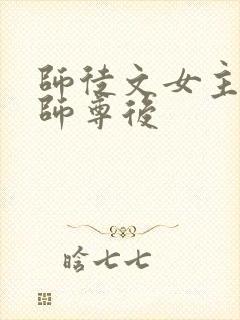 師徒文女主
師尊後
晗七七